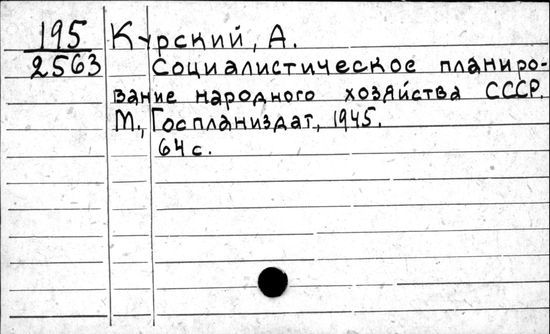 195 Курский, А.
2563 Социалистическое планиро-
вание народного хозяйства СССР.
М., Госпланиздат, 1945.
64 с.